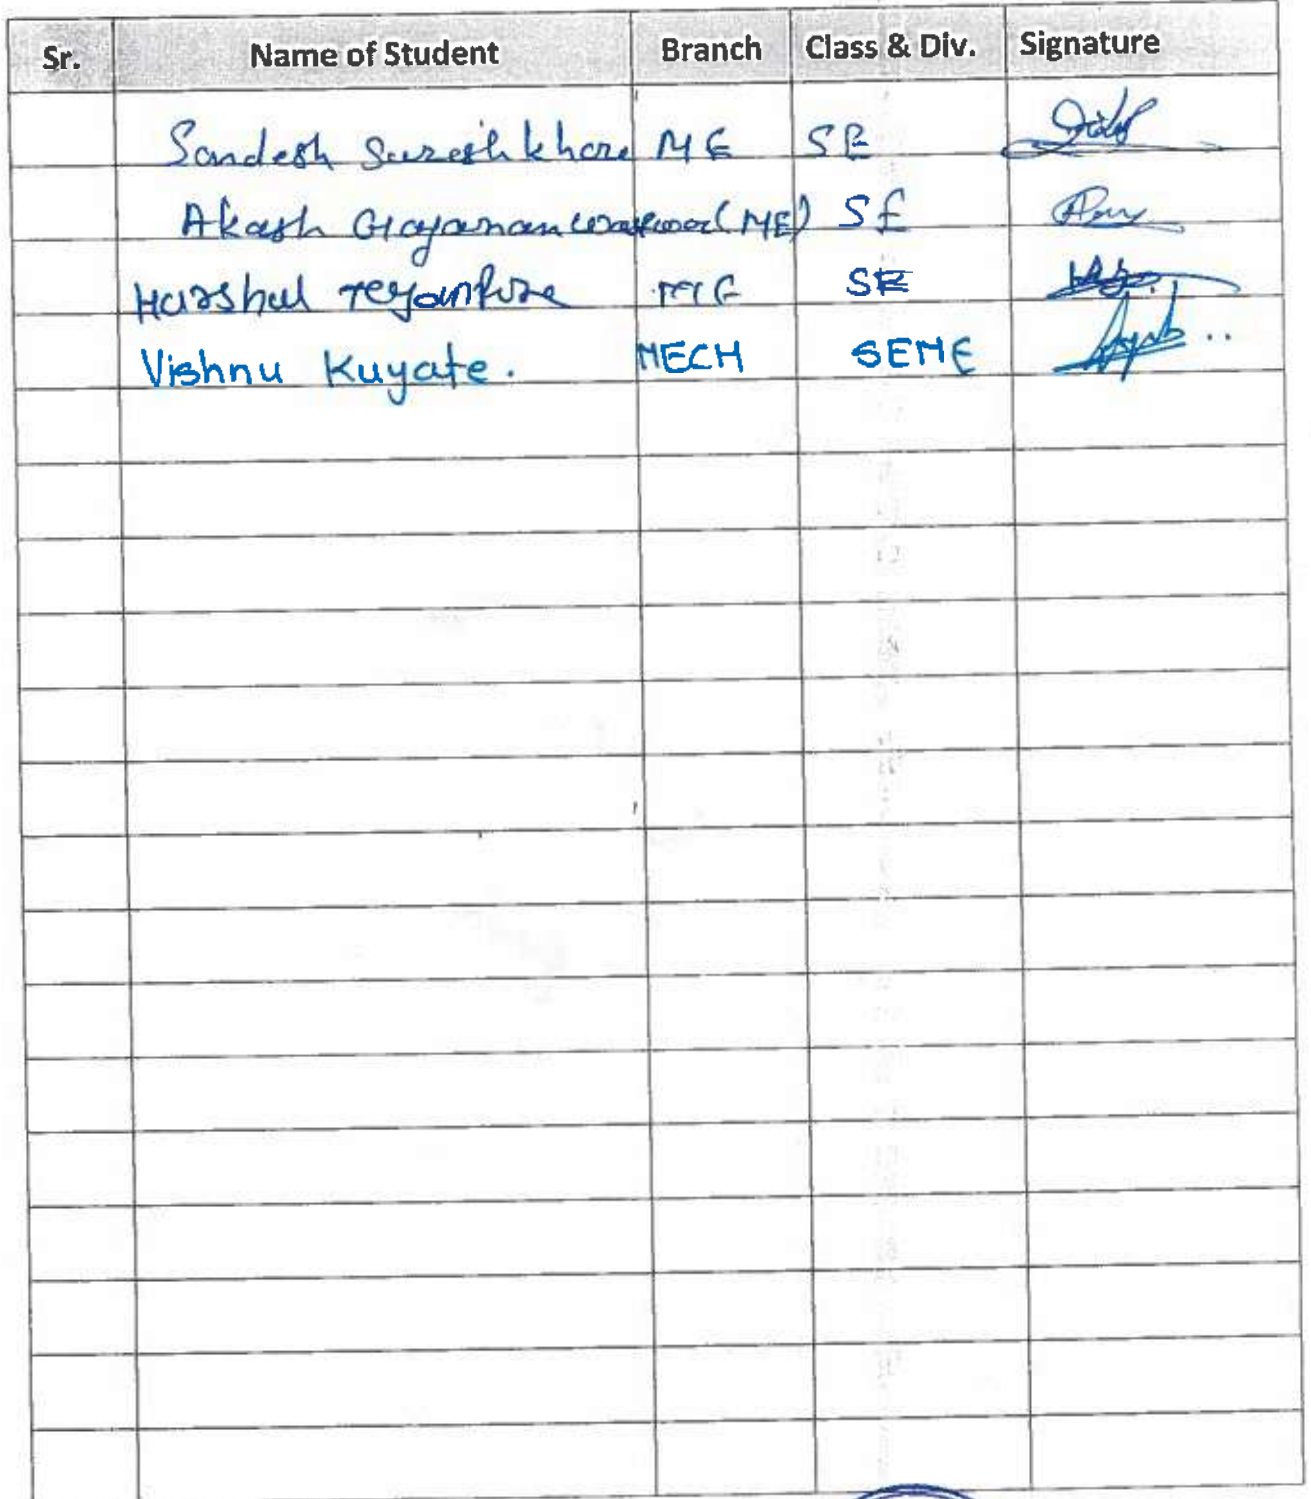 Sr. Name of Student Branch Class & Div. Signature
Sandesh Suresh khare ME SE
Akash Gajanan (ME) SE
Harshal ME SE
Vishnu Kuyate. MECH SEME